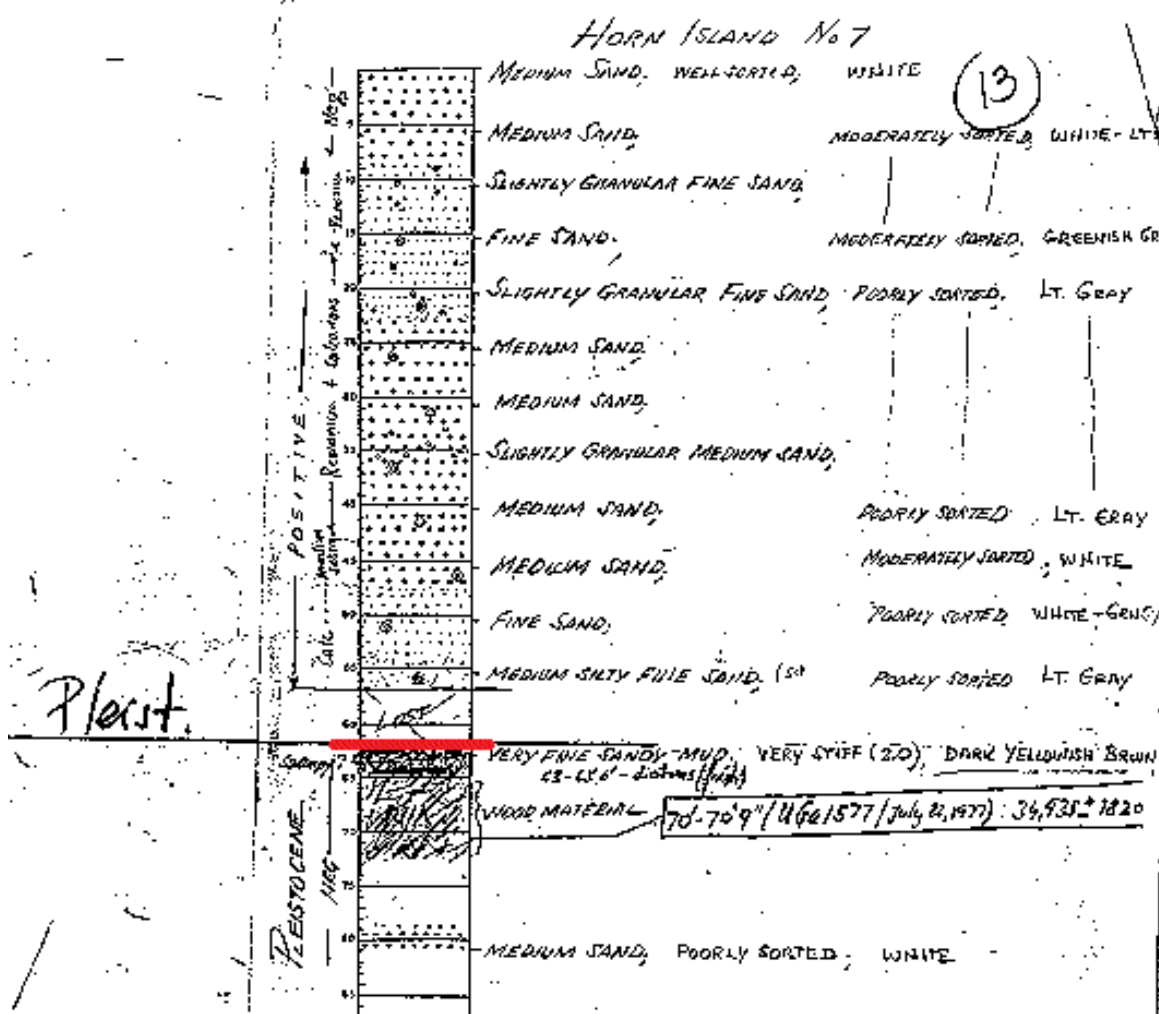 HORN ISLAND No 7
13
MEDIUM SAND, WELL SORTED, WHITE
MEDIUM SAND, MODERATELY SORTED, WHITE-LT
SLIGHTLY GRANULAR FINE SAND,
FINE SAND, MODERATELY SORTED, GREENISH GR
SLIGHTLY GRANULAR FINE SAND, POORLY SORTED, LT. GRAY
MEDIUM SAND,
MEDIUM SAND,
SLIGHTLY GRANULAR MEDIUM SAND,
MEDIUM SAND, POORLY SORTED, LT. GRAY
MEDIUM SAND, MODERATELY SORTED, WHITE
FINE SAND, POORLY SORTED, WHITE-
MEDIUM SILTY FINE SAND, POORLY SORTED LT. GRAY
POSITIVE
LOST
Pleist.
VERY FINE SANDY MUD, VERY STIFF (2.0), DARK YELLOWISH BROWN
WOOD MATERIAL
70'-70'9" (UGa1577/July 22, 1977): 34,935±1820
PLEISTOCENE
NEG
75
80
MEDIUM SAND, POORLY SORTED, WHITE
85